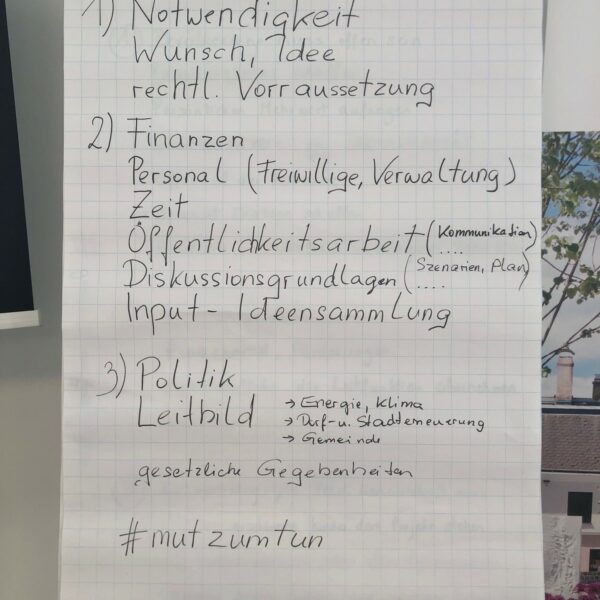 1) Notwendigkeit
Wunsch, Idee
rechtl. Vorraussetzung
2) Finanzen
Personal (Freiwillige, Verwaltung)
Zeit
Öffentlichkeitsarbeit (Kommunikation)
....
Diskussionsgrundlagen (Szenarien, Plan)
....
Input - Ideensammlung
3) Politik
Leitbild → Energie, Klima
→ Dorf- u. Stadterneuerung
→ Gemeinde
gesetzliche Gegebenheiten
#mutzumtun